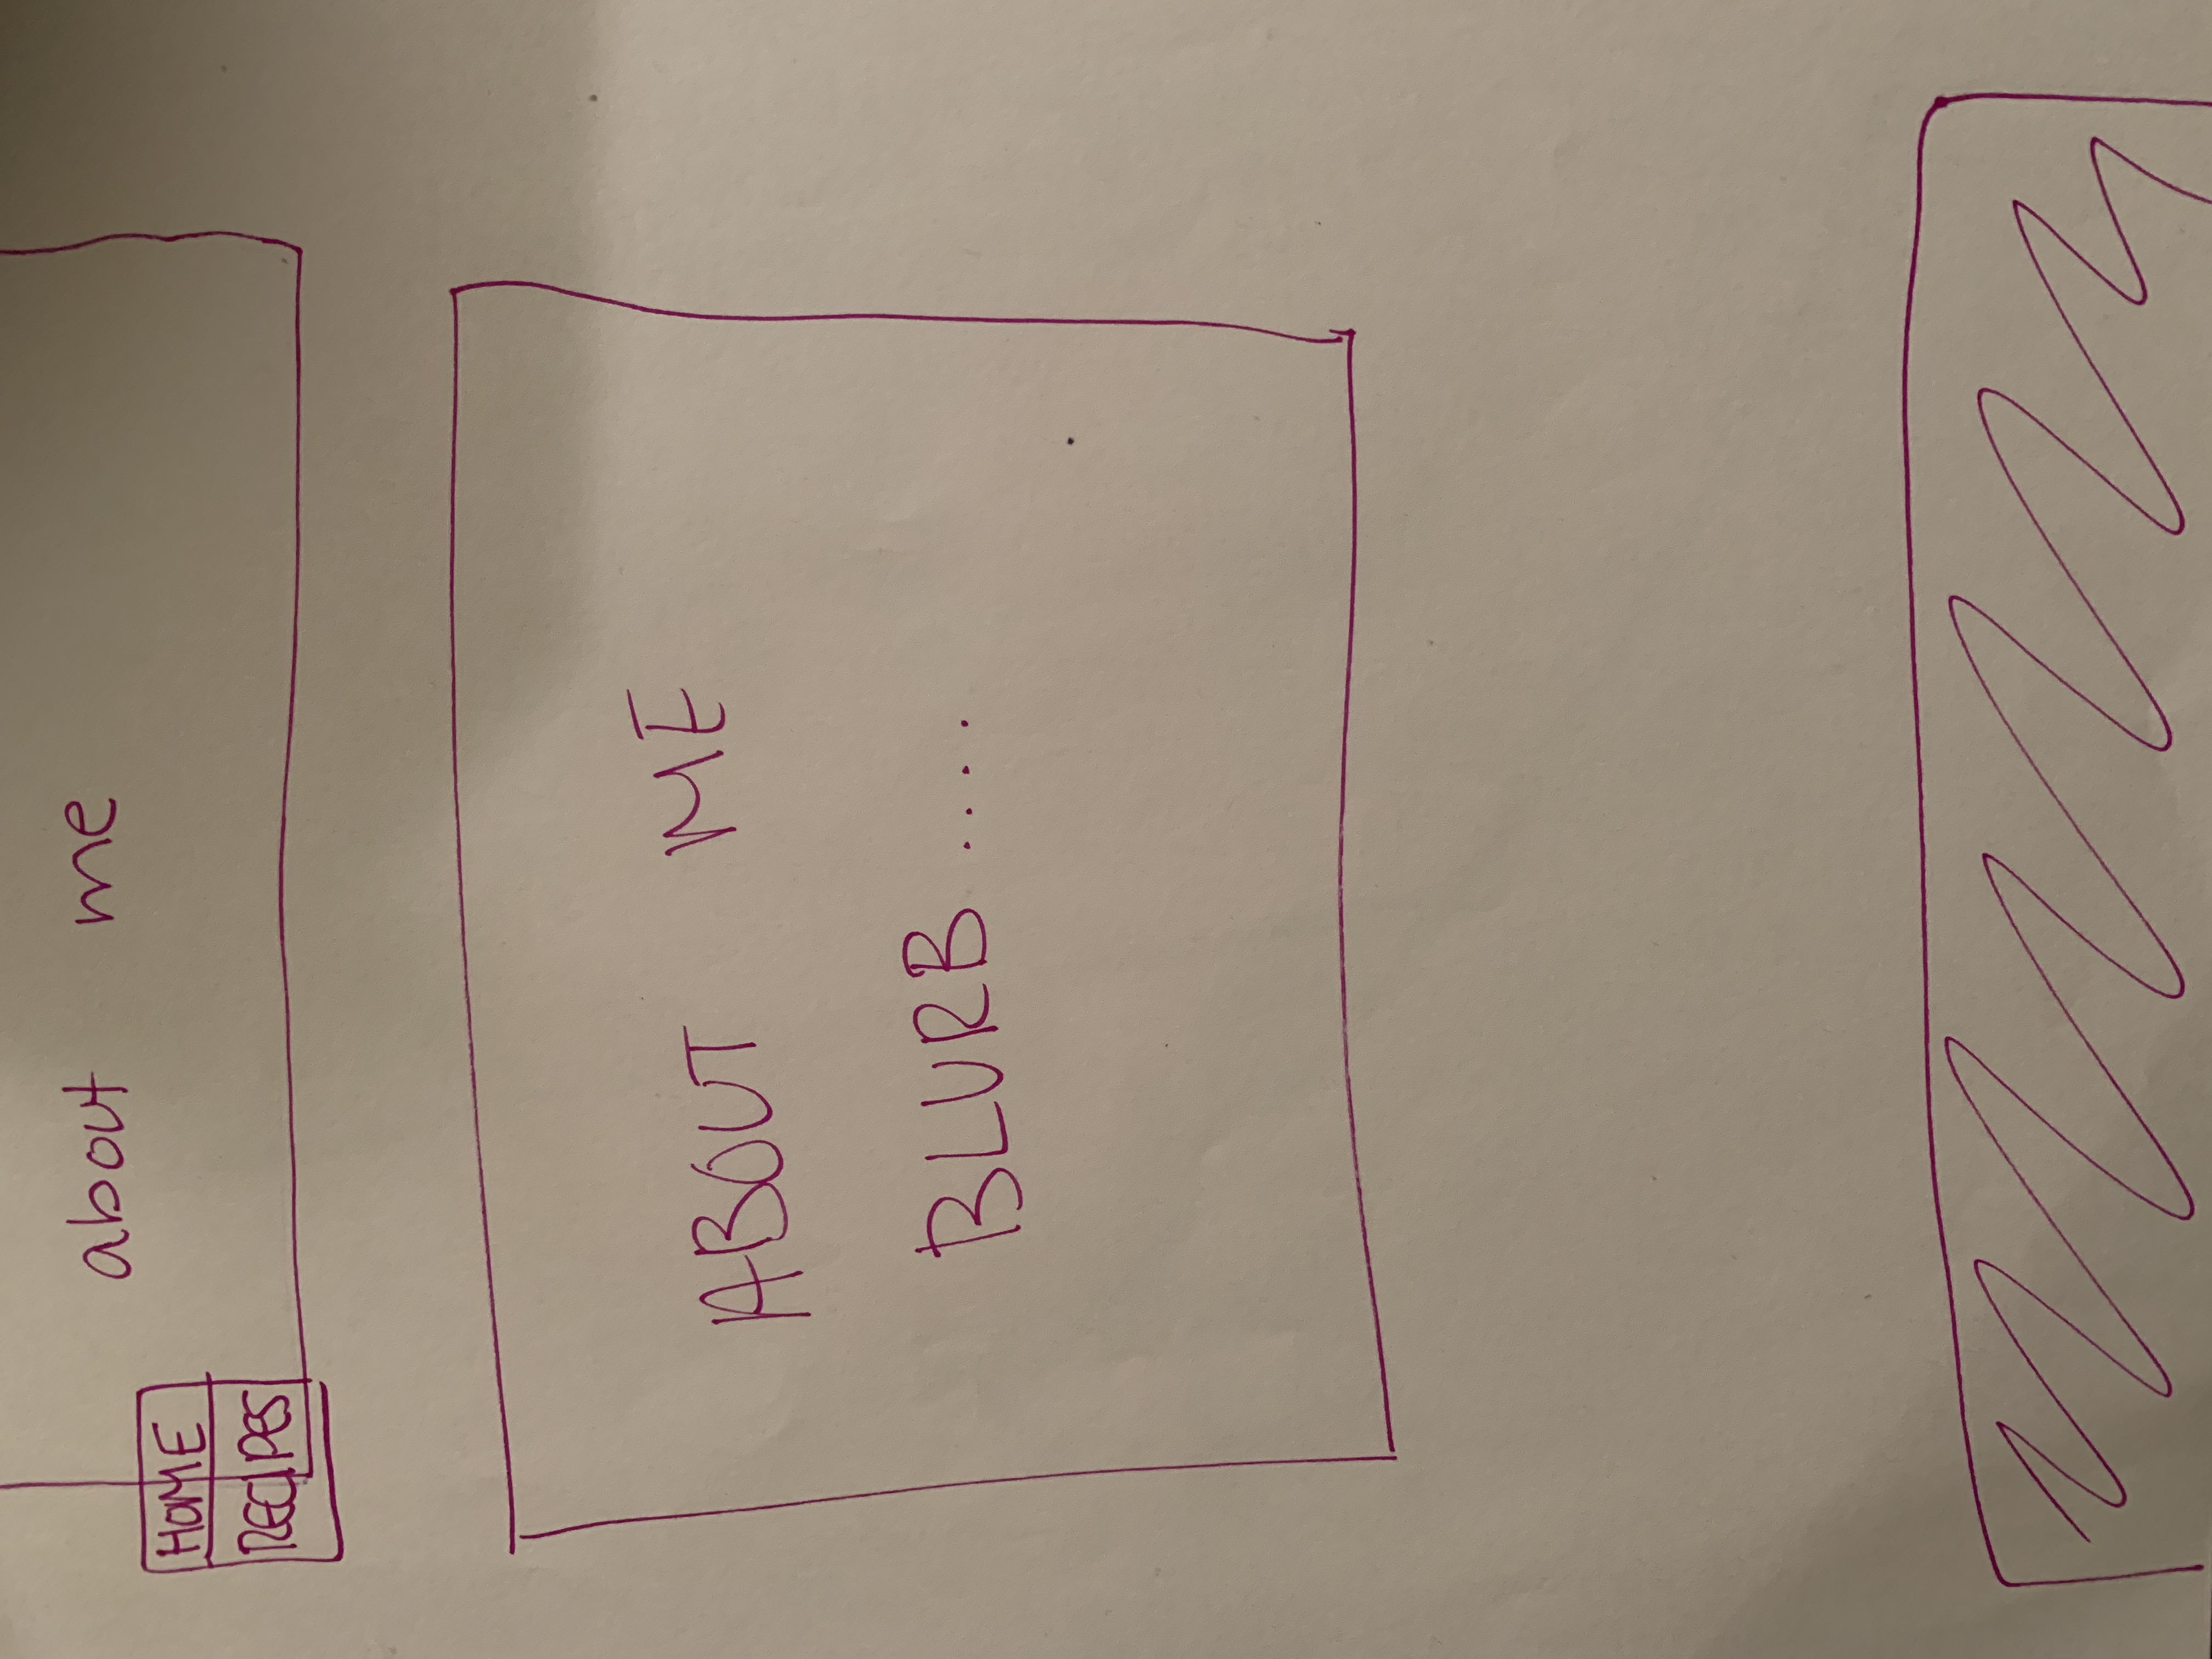 about me
HOME
RECIPES
ABOUT ME
BLURB ....